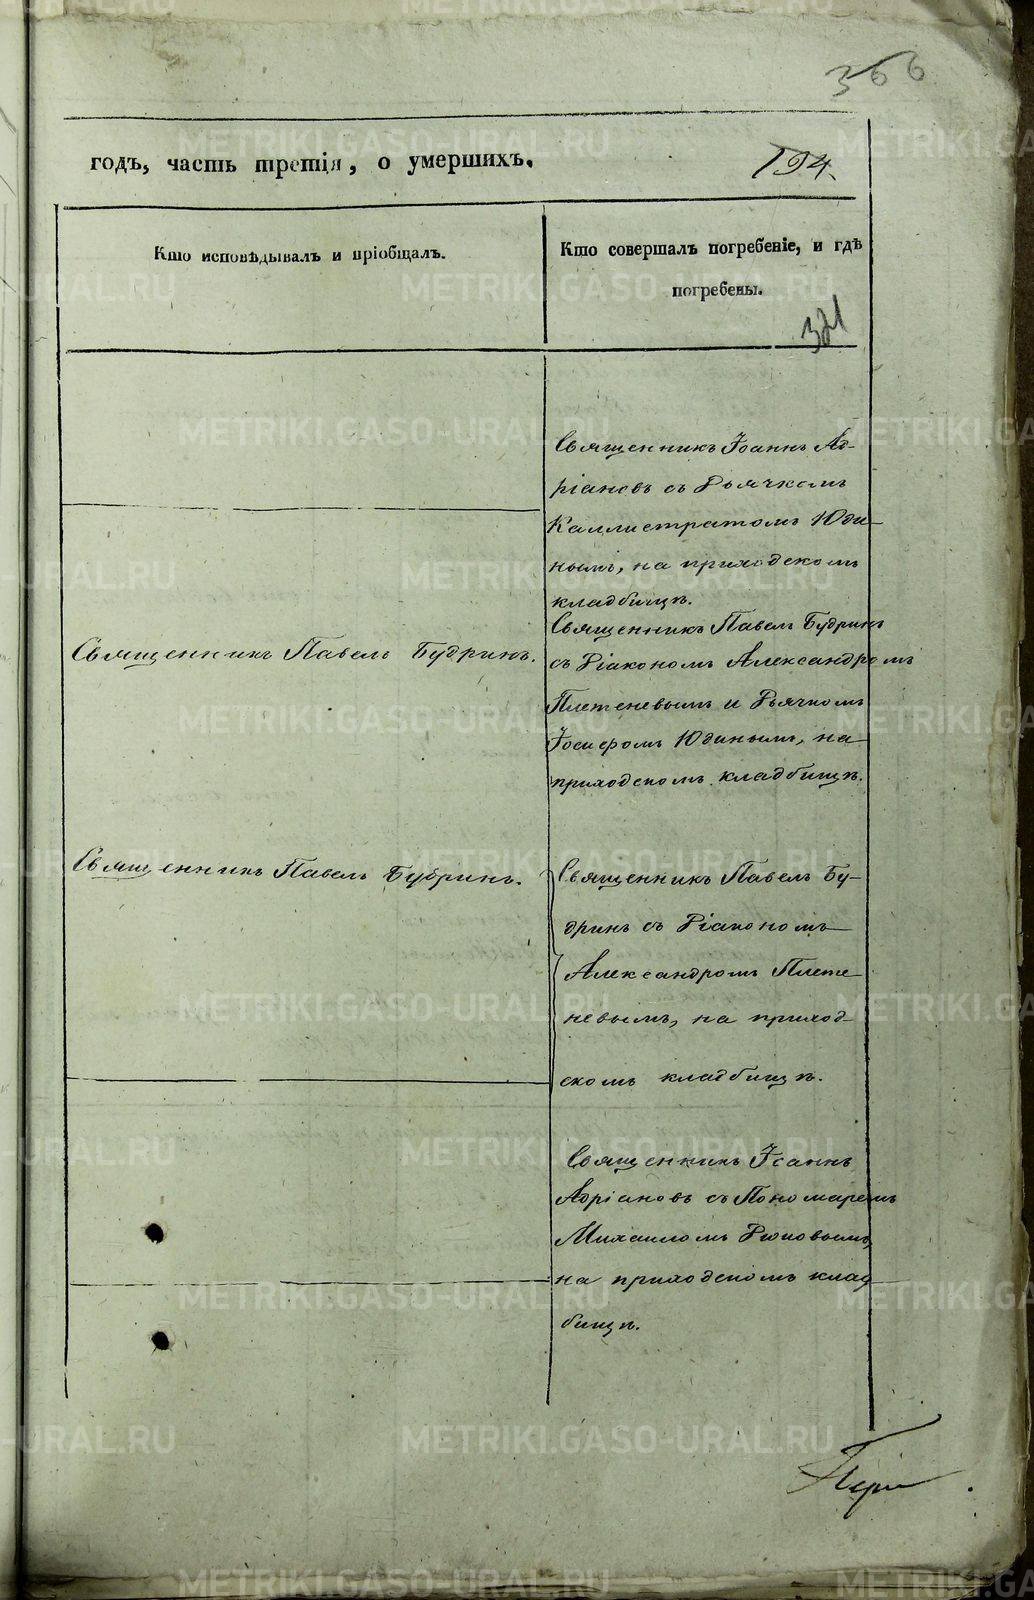 366
годъ, часть третія, о умершихъ.
194.
Кто исповѣдывалъ и пріобщалъ.
Кто совершалъ погребеніе, и гдѣ
погребены.
321
Священникъ Іоаннъ Ад-
ріановъ съ Дьячкомъ
Каллистратомъ Юди-
нымъ, на приходскомъ
кладбищѣ.
Священникъ Павелъ Будринъ.
Священникъ Павелъ Будринъ
съ Діакономъ Александромъ
Плетеневымъ и Дьячкомъ
Іосифомъ Юдинымъ, на
приходскомъ кладбищѣ.
Священникъ Павелъ Будринъ.
Священникъ Павелъ Бу-
дринъ съ Діакономъ
Александромъ Плете
невымъ, на приход-
скомъ кладбищѣ.
Священникъ Іоаннъ
Адріановъ съ Пономаремъ
Михаиломъ
на приходскомъ клад
бищѣ.
METRIKI.GASO-URAL.RU